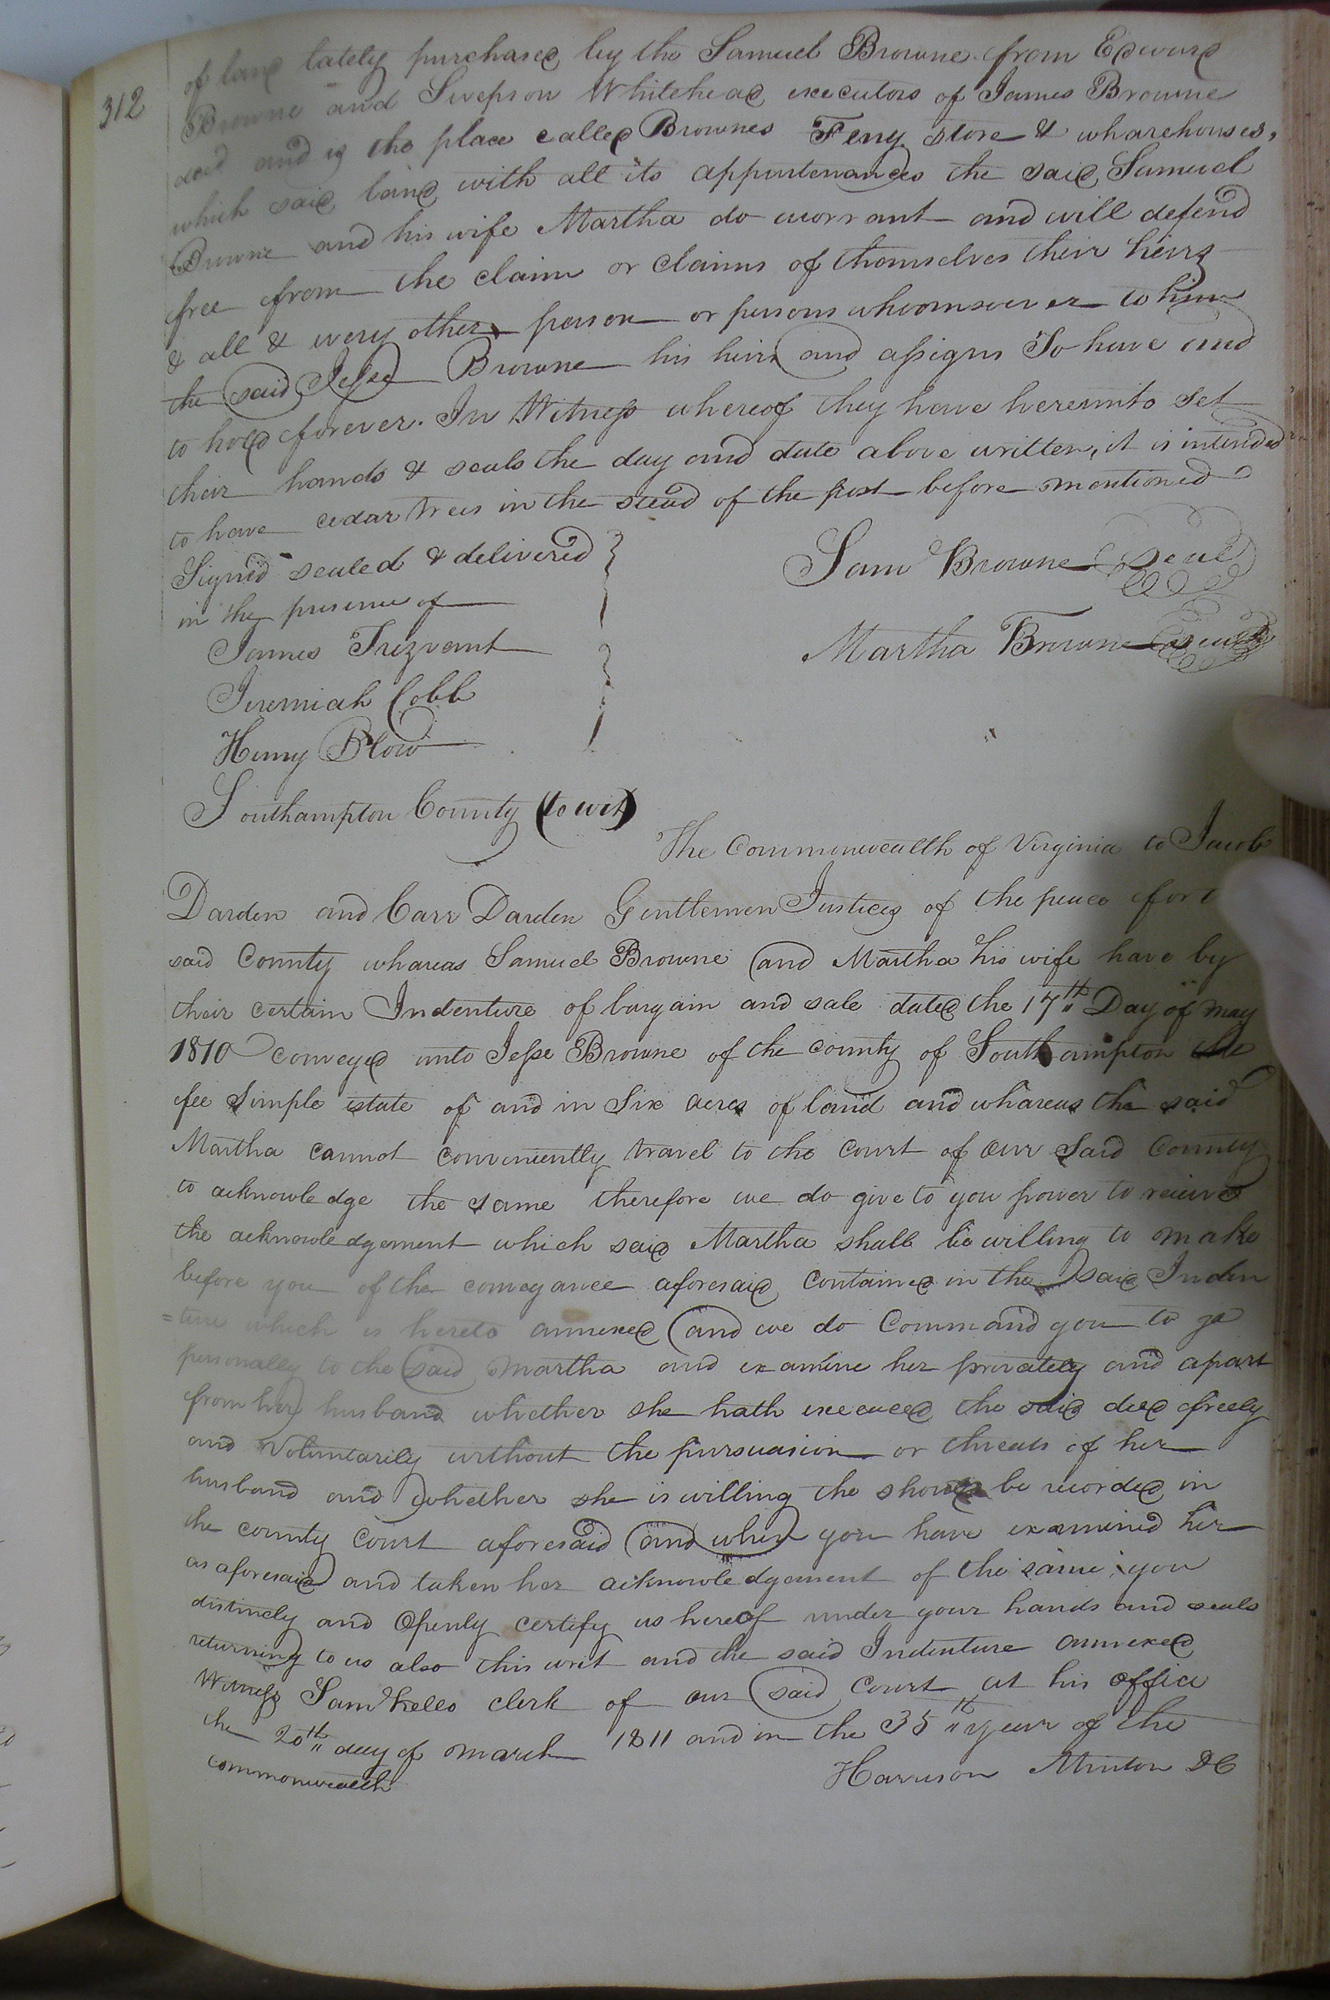 312
of land lately purchased by the Samuel Browne from Edward
Browne and Swepson Whitehead executors of James Browne
decd and is the place called Brownes Ferry store & wharehouses,
which said land with all its appurtenances the said Samuel
Browne and his wife Martha do worrant and will defend
free from the claim or claims of themselves their heirs
& all & every other person or persons whoomsoever to him
the said Jesse Browne his heirs and assigns To have and
to hold forever. In Witness whereof they have hereunto set
their hands & seals the day and date above written, it is intended
to have cedar trees in the stead of the post before mentioned
Signd sealed & delivered
in the presence of
Sam Browne seal
James Trezvant
Martha Browne seal
Jeremiah Cobb
Henry Blow
Southampton County (to wit)
The Commonwealth of Virginia to Jacob
Darden and Carr Darden Gentlemen Justices of the peace for
said County whareas Samuel Browne and Martha his wife have by
their certain Indenture of bargain and sale dated the 17th Day of may
1810 conveyed unto Jesse Browne of the county of Southampton the
fee simple estate of and in Six acres of land and whareas the said
Martha cannot conveniently travel to the court of our Said County
to acknowledge the same therefore we do give to you power to receive
the acknowledgement which said Martha shall be willing to make
before you of the conveyance aforesaid contained in the said Inden
=ture which is hereto annexed and we do Command you to go
personally to the said Martha and examine her privately and apart
from her husband whether she hath executed the said deed freely
and Voluntarily without the pursuasion or threats of her
husband and whether she is willing the should be recorded in
the county court aforesaid and when you have examined her
as aforesaid and taken her acknowledgement of the same you
distincly and Openly certify us hereof under your hands and seals
returning to us also this writ and the said Indenture annexed
Witness Saml Kello clerk of our said court at his office
the 20th day of march 1811 and in the 35th year of the
commonwealth
Harrison Minton DC